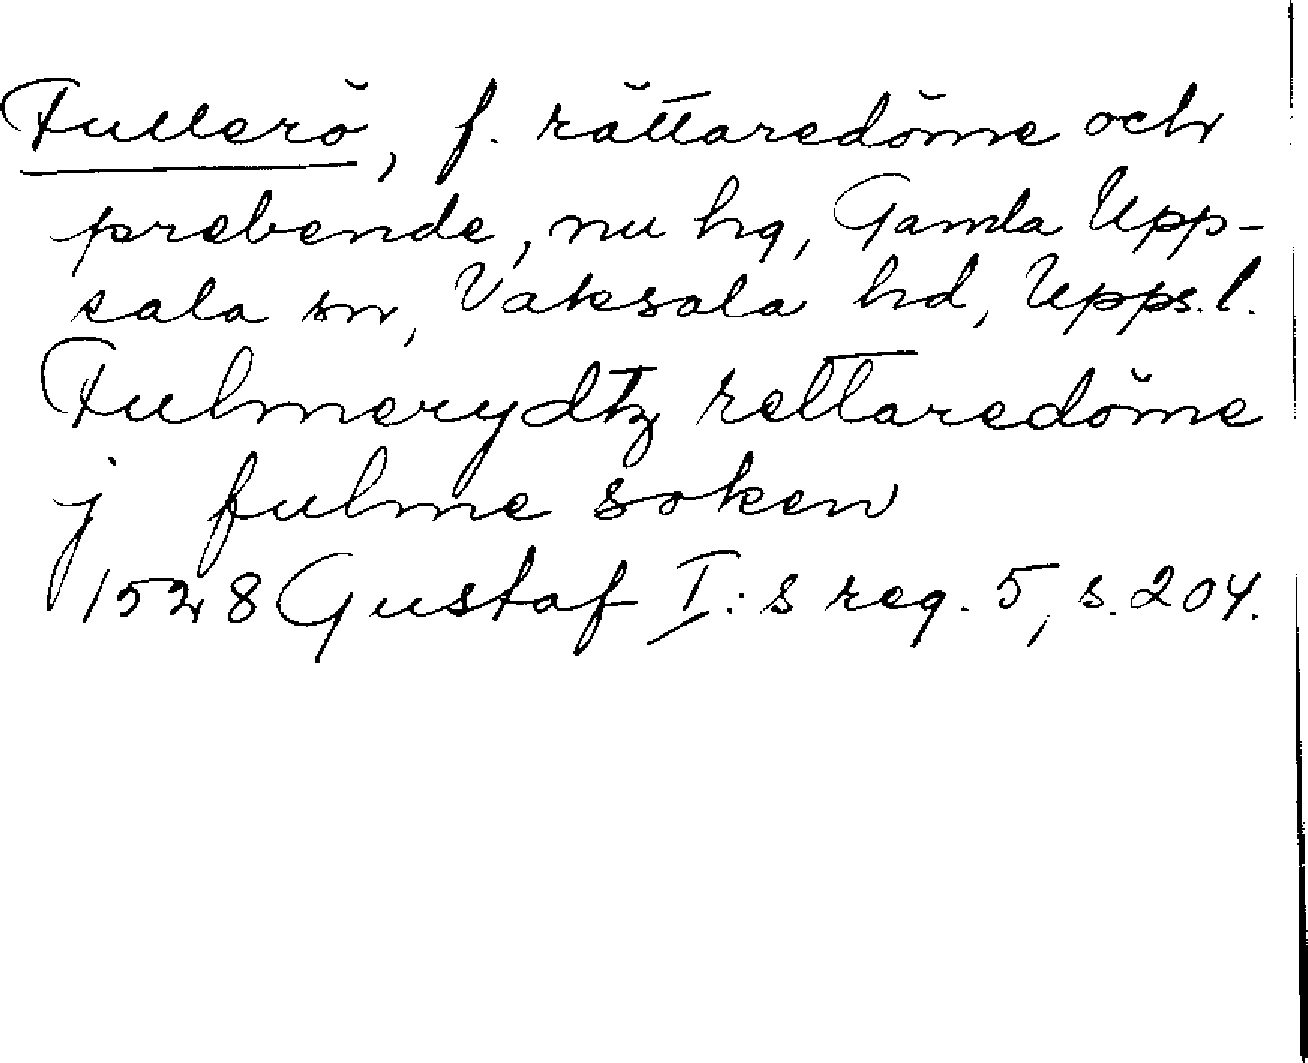 Fullerö, f. rättaredöme och
prebende, nu hg, Gamla Upp-
sala sn, Vaksala hd, Upps. l.
Fulmerydtz rettaredöme
j fulme soken
1528 Gustaf I:s reg. 5, s. 204.